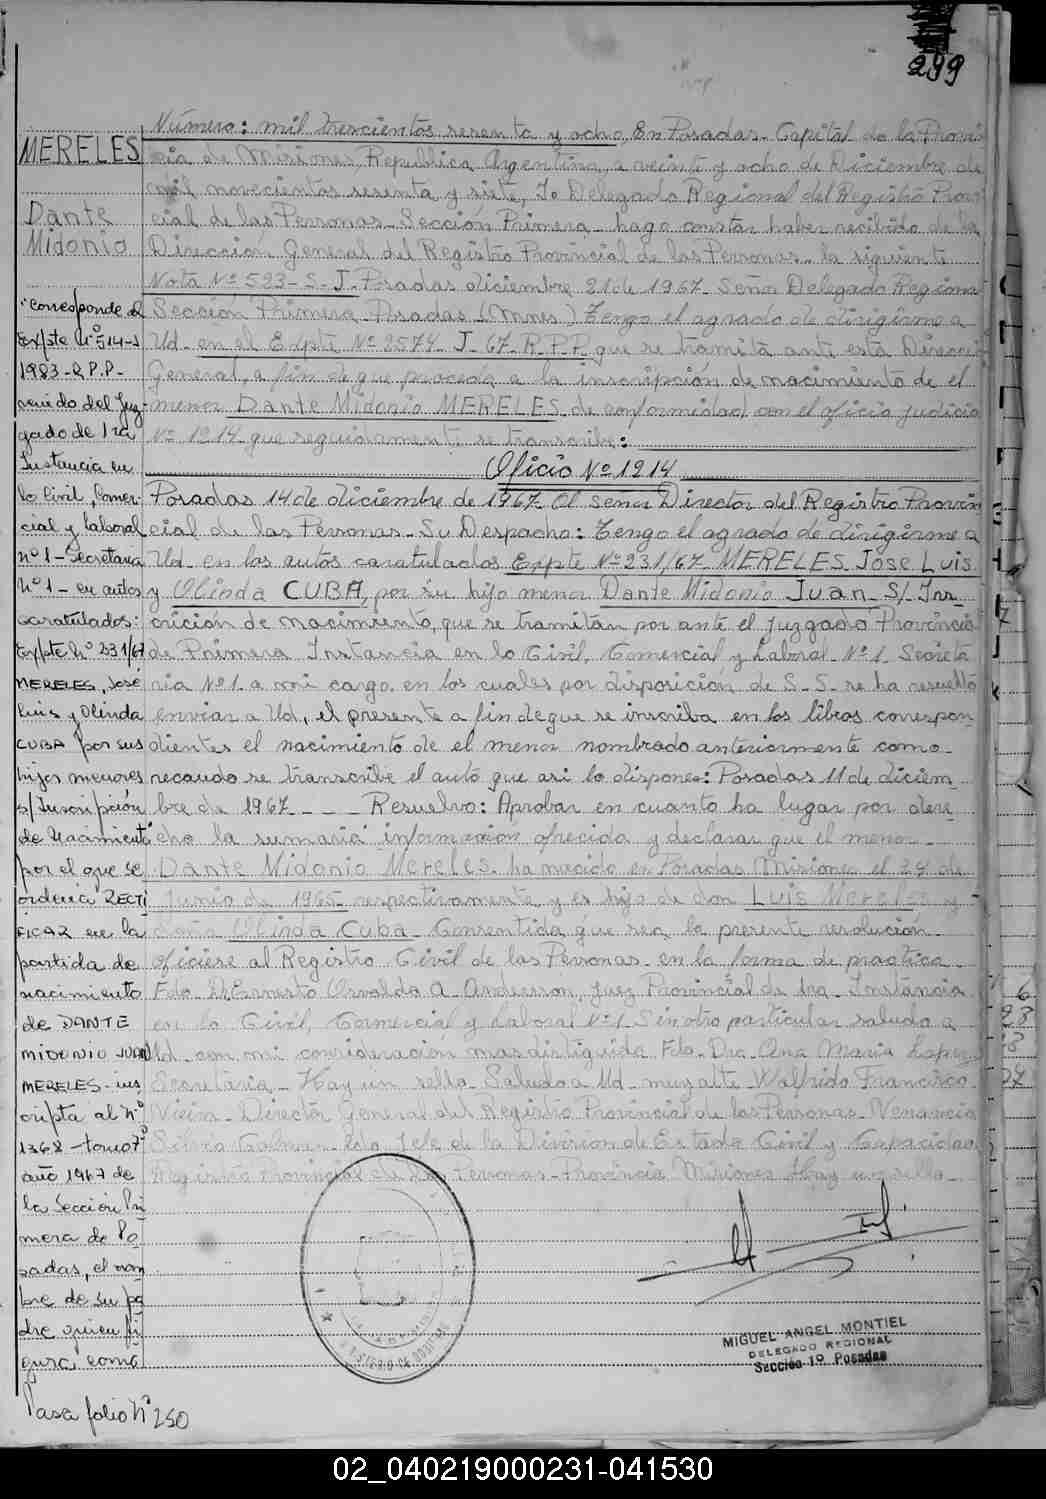 299
MERELES
Dante
Midonio
Número: mil trescientos sesenta y ocho, En Posadas- Capital de la Provin
cia de Misiones, República Argentina, a veinte y ocho de Diciembre de
mil novecientos sesenta y siete, Yo Delegado Regional del Registro Provin
cial de las Personas- Sección Primera- hago constar haber recibido de la
Dirección General del Registro Provincial de las Personas- la siguiente
Nota Nº 523-S-J- Posadas diciembre 21 de 1967- Señor Delegado Regional
Sección Primera- Posadas (Mnes) Tengo el agrado de dirigirme a
Ud- en el Expte Nº 2574- J-67-R.P.P. que se tramita ante esta Direcci
General, a fin de que proceda a la inscripción de nacimiento de el
menor Dante Midonio MERELES de conformidad con el oficio judicia
Nº 1214- que seguidamente se transcribe:
Oficio Nº 1214
Posadas 14 de diciembre de 1967- Al señor Director del Registro Provin
cial de las Personas- Su Despacho: Tengo el agrado de dirigirme a
Ud- en los autos caratulados Expte Nº 231/67- MERELES- Jose Luis
y Olinda CUBA, por su hijo menor Dante Midonio Juan- S/ Ins
crición de nacimiento, que se tramitan por ante el Juzgado Provincia
de Primera Instancia en lo Civil, Comercial y Laboral- Nº 1- Secreta
ria Nº 1- a mi cargo, en los cuales por disposición de S-S- se ha resuelto
enviar a Ud, el presente a fin de que se inscriba en los libros correspon
dientes el nacimiento de el menor nombrado anteriormente como-
recaudo se transcribe el auto que asi lo dispone: Posadas 11 de diciem
bre de 1967- - - - Resuelvo: Aprobar en cuanto ha lugar por dere
cho la sumaria informacion ofrecida y declarar que el menor-
Dante Midonio Mereles- ha nacido en Posadas Misiones el 24 de
Junio de 1965- respectivamente y es hijo de don Luis Mereles y
doña Olinda Cuba- Consentida que sea la presente resolución-
ofíciese al Registro Civil de las Personas- en la forma de practica-
Fdo- Dr Ernesto Osvaldo A- Andersson, Juez Provincial de 1ra- Instancia
en lo Civil, Comercial y Laboral Nº 1- Sin otro particular saludo a
Ud- con mi consideración mas distiguida Fdo- Dra- Ana Maria Lopez
Secretaria- Hay un sello- Saludo a Ud- muy atte- Walfrido Francisco-
Vieira- Director General del Registro Provincial de las Personas- Venancia
Silvia Galman- Jefe de la Division de Estado Civil y Capacidad
Registro Provincial de las Personas- Provincia Misiones Hay un sello-
Corresponde al
Expte Nº 514-S
1983-R.P.P-
venido del Juz-
gado de 1ra
Instancia en
lo Civil, Comer-
cial y laboral
nº 1- Secretaria
Nº 1- en autos
caratulados:
Expte Nº 231/67
MERELES, Jose
Luis y Olinda
CUBA por sus
hijos menores
s/ Inscripción
de Nacimiento
por el que se
ordena RECTI
FICAR en la
partida de
nacimiento
de DANTE
MIDONIO JUAN
MERELES- ins
cripta al Nº
1368-tomo 7º
año 1967 de
la Sección Pri
mera de Po
sadas, el nom
bre de su pa
dre quien fi
gura como
Pasa folio Nº 250
MIGUEL ANGEL MONTIEL
DELEGADO REGIONAL
Sección 1º Posadas
02_040219000231-041530